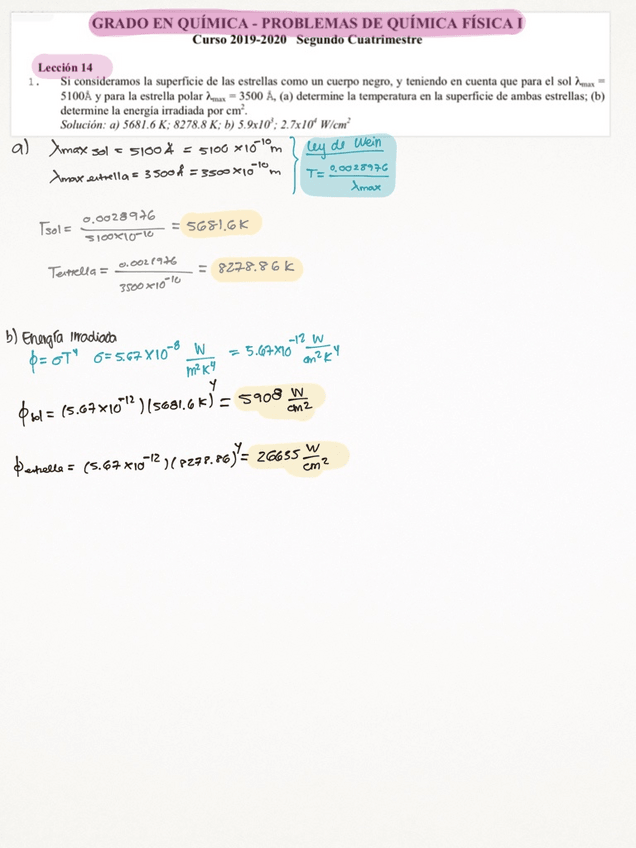 GRADO EN QUÍMICA - PROBLEMAS DE QUÍMICA FÍSICA I
Curso 2019-2020 Segundo Cuatrimestre
Lección 14
1. Si consideramos la superficie de las estrellas como un cuerpo negro, y teniendo en cuenta que para el sol λmax =
5100Å y para la estrella polar λmax = 3500 Å, (a) determine la temperatura en la superficie de ambas estrellas; (b)
determine la energía irradiada por cm².
Solución: a) 5681.6 K; 8278.8 K; b) 5.9x10³; 2.7x10⁴ W/cm²
a) λmax sol = 5100 Å = 5100 × 10⁻¹⁰ m
λmax estrella = 3500 Å = 3500 × 10⁻¹⁰ m
Ley de Wein
T = 0.0028976 / λmax
Tsol = 0.0028976 / 5100×10⁻¹⁰ = 5681.6 K
Testrella = 0.0028976 / 3500×10⁻¹⁰ = 8278.86 K
b) Energía Irradiada
ϕ = σT⁴ σ = 5.67×10⁻⁸ W / m²K⁴ = 5.67×10⁻¹² W / cm²K⁴
ϕsol = (5.67×10⁻¹²)(5681.6 K)⁴ = 5908 W / cm²
ϕestrella = (5.67×10⁻¹²)(8278.86)⁴ = 26635 W / cm²